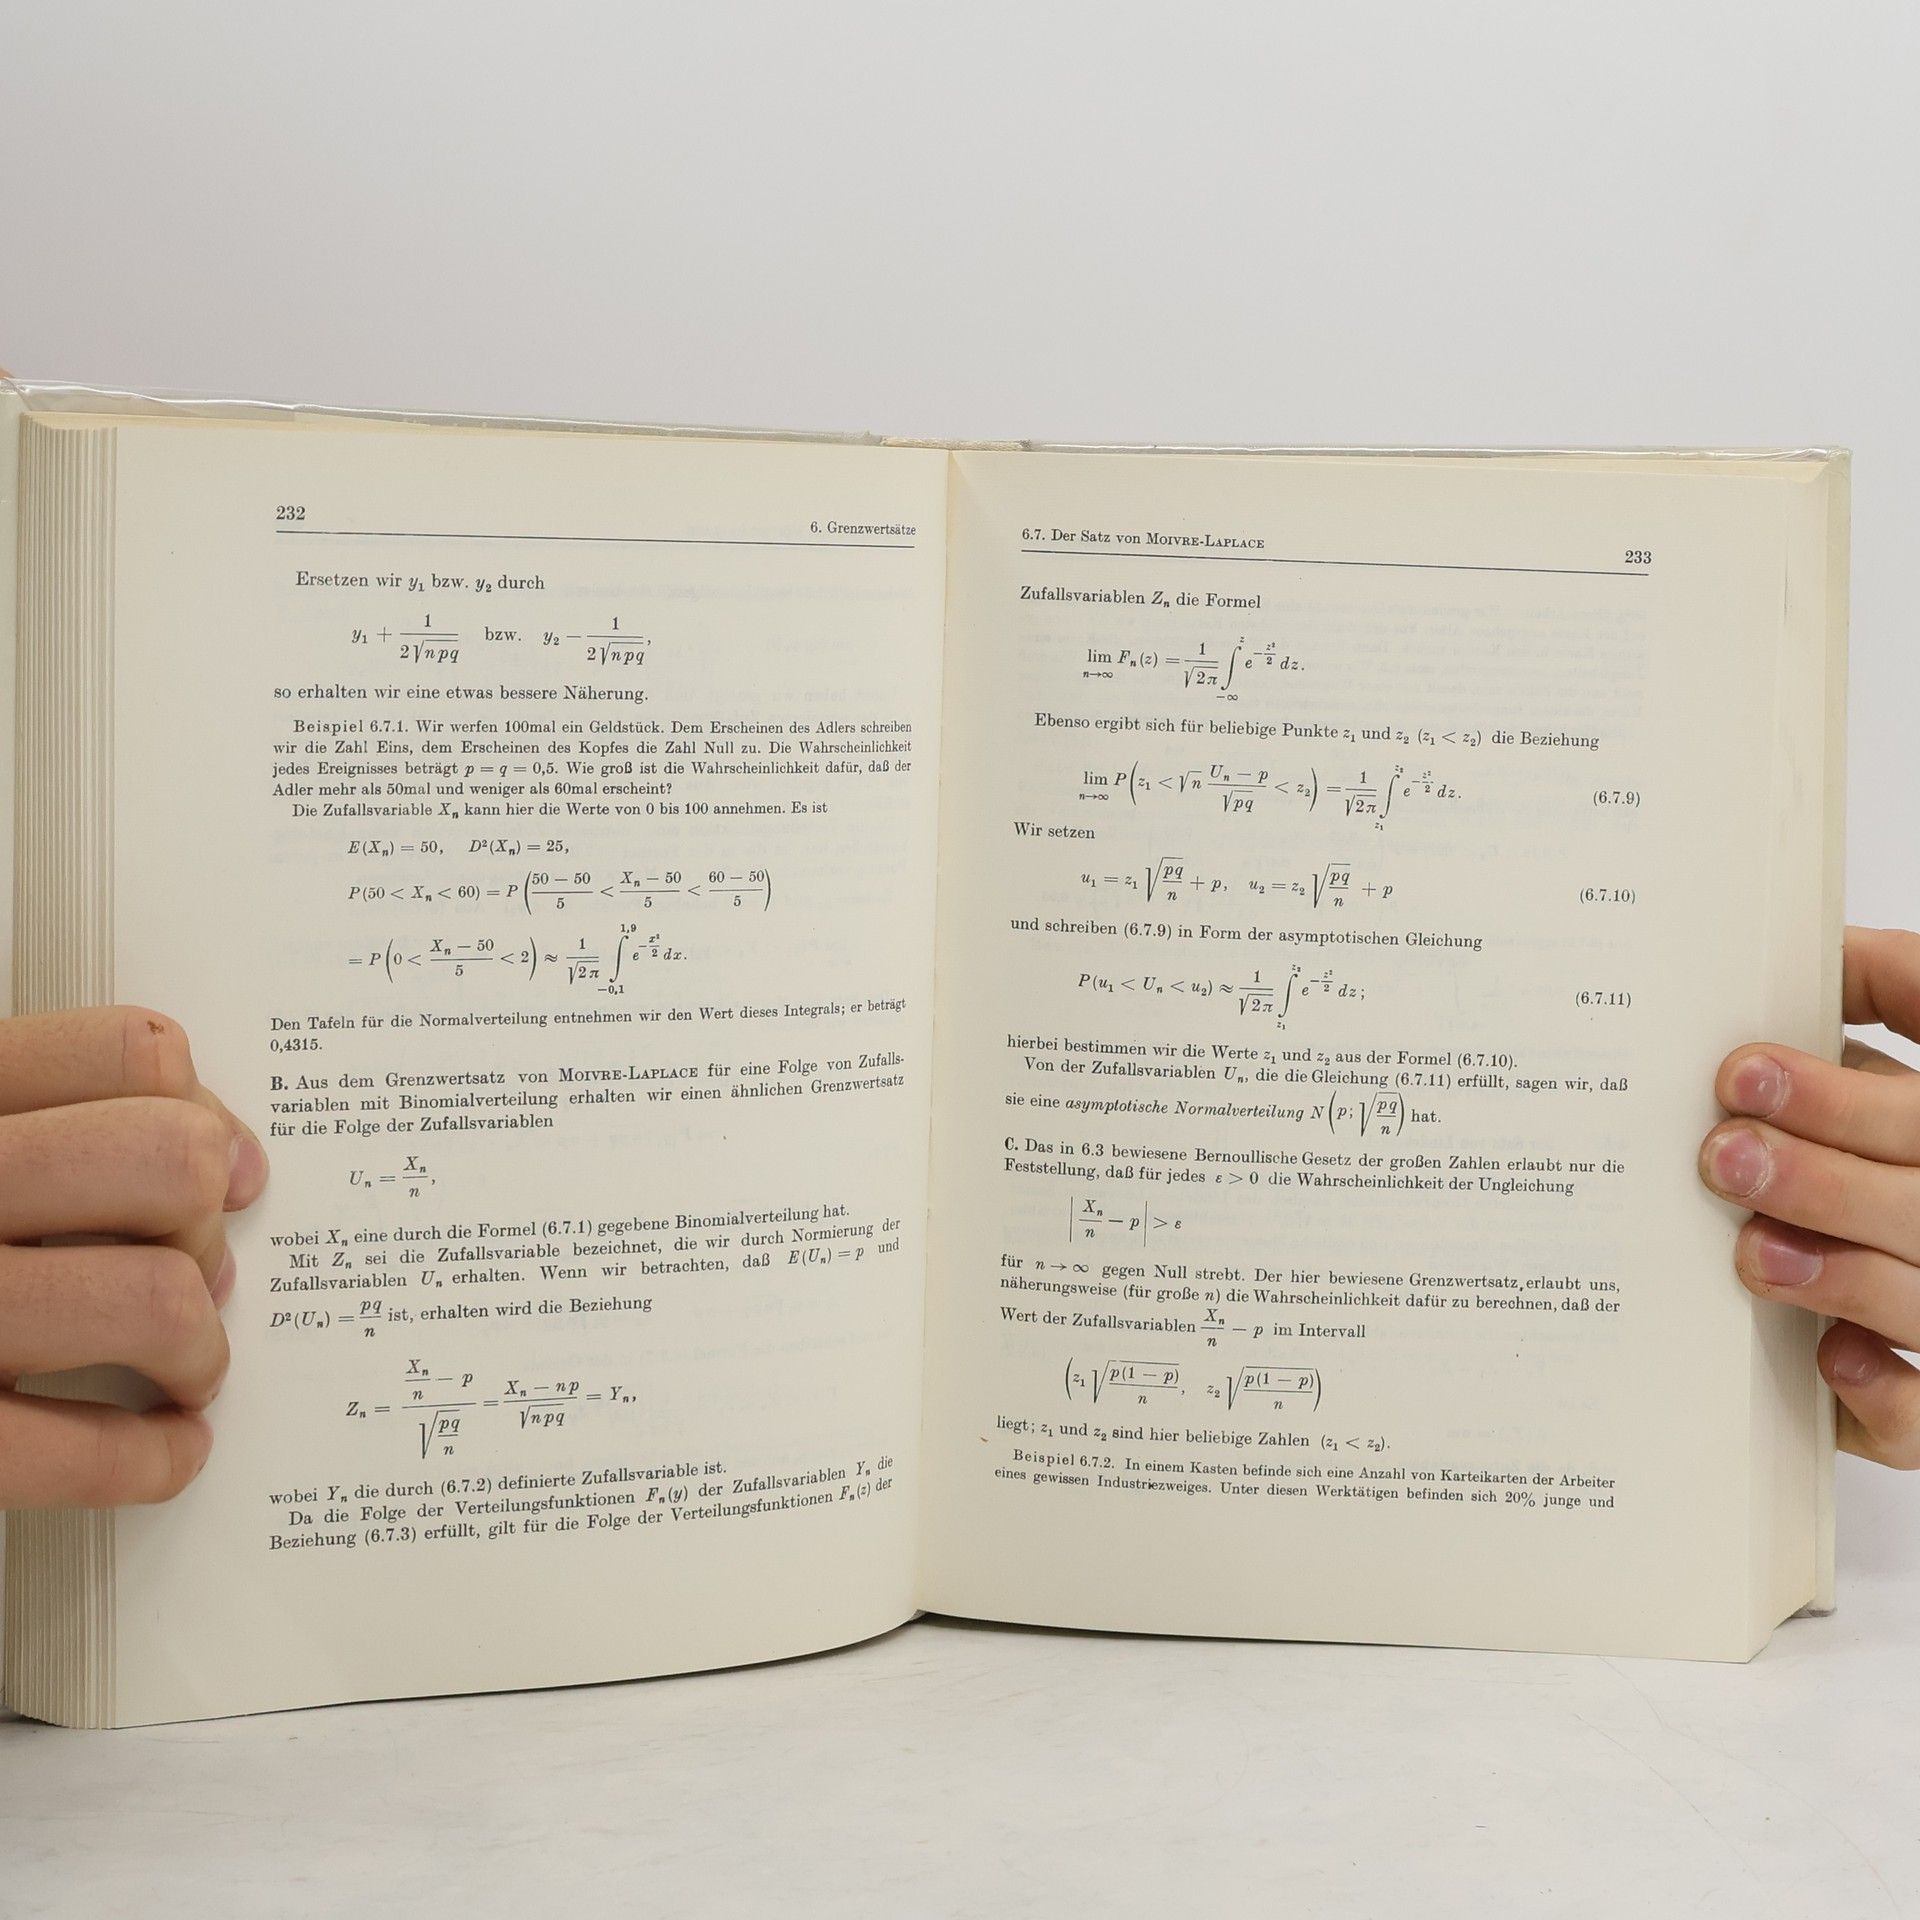 232
6. Grenzwertsätze
Ersetzen wir y₁ bzw. y₂ durch
y₁ + 1/(2√(npq)) bzw. y₂ − 1/(2√(npq)),
so erhalten wir eine etwas bessere Näherung.
Beispiel 6.7.1. Wir werfen 100mal ein Geldstück. Dem Erscheinen des Adlers schreiben
wir die Zahl Eins, dem Erscheinen des Kopfes die Zahl Null zu. Die Wahrscheinlichkeit
jedes Ereignisses beträgt p = q = 0,5. Wie groß ist die Wahrscheinlichkeit dafür, daß der
Adler mehr als 50mal und weniger als 60mal erscheint?
Die Zufallsvariable Xₙ kann hier die Werte von 0 bis 100 annehmen. Es ist
E(Xₙ) = 50, D²(Xₙ) = 25,
P(50 < Xₙ < 60) = P((50 − 50)/5 < (Xₙ − 50)/5 < (60 − 50)/5)
= P(0 < (Xₙ − 50)/5 < 2) ≈ 1/√(2π) ∫_{−0,1}^{1,9} e^{−x²/2} dx.
Den Tafeln für die Normalverteilung entnehmen wir den Wert dieses Integrals; er beträgt
0,4315.
B. Aus dem Grenzwertsatz von MOIVRE-LAPLACE für eine Folge von Zufalls-
variablen mit Binomialverteilung erhalten wir einen ähnlichen Grenzwertsatz
für die Folge der Zufallsvariablen
Uₙ = Xₙ/n,
wobei Xₙ eine durch die Formel (6.7.1) gegebene Binomialverteilung hat.
Mit Zₙ sei die Zufallsvariable bezeichnet, die wir durch Normierung der
Zufallsvariablen Uₙ erhalten. Wenn wir betrachten, daß E(Uₙ) = p und
D²(Uₙ) = pq/n ist, erhalten wird die Beziehung
Zₙ = (Xₙ/n − p)/√(pq/n) = (Xₙ − np)/√(npq) = Yₙ,
wobei Yₙ die durch (6.7.2) definierte Zufallsvariable ist.
Da die Folge der Verteilungsfunktionen Fₙ(y) der Zufallsvariablen Yₙ die
Beziehung (6.7.3) erfüllt, gilt für die Folge der Verteilungsfunktionen Fₙ(z) der
6.7. Der Satz von MOIVRE-LAPLACE
233
Zufallsvariablen Zₙ die Formel
lim_{n→∞} Fₙ(z) = 1/√(2π) ∫_{−∞}^{z} e^{−z²/2} dz.
Ebenso ergibt sich für beliebige Punkte z₁ und z₂ (z₁ < z₂) die Beziehung
lim_{n→∞} P(z₁ < √n (Uₙ − p)/√(pq) < z₂) = 1/√(2π) ∫_{z₁}^{z₂} e^{−z²/2} dz. (6.7.9)
Wir setzen
u₁ = z₁ √(pq/n) + p, u₂ = z₂ √(pq/n) + p (6.7.10)
und schreiben (6.7.9) in Form der asymptotischen Gleichung
P(u₁ < Uₙ < u₂) ≈ 1/√(2π) ∫_{z₁}^{z₂} e^{−z²/2} dz; (6.7.11)
hierbei bestimmen wir die Werte z₁ und z₂ aus der Formel (6.7.10).
Von der Zufallsvariablen Uₙ, die die Gleichung (6.7.11) erfüllt, sagen wir, daß
sie eine asymptotische Normalverteilung N(p; √(pq/n)) hat.
C. Das in 6.3 bewiesene Bernoullische Gesetz der großen Zahlen erlaubt nur die
Feststellung, daß für jedes ε > 0 die Wahrscheinlichkeit der Ungleichung
|Xₙ/n − p| > ε
für n → ∞ gegen Null strebt. Der hier bewiesene Grenzwertsatz erlaubt uns,
näherungsweise (für große n) die Wahrscheinlichkeit dafür zu berechnen, daß der
Wert der Zufallsvariablen Xₙ/n − p im Intervall
(z₁ √(p(1 − p)/n), z₂ √(p(1 − p)/n))
liegt; z₁ und z₂ sind hier beliebige Zahlen (z₁ < z₂).
Beispiel 6.7.2. In einem Kasten befinde sich eine Anzahl von Karteikarten der Arbeiter
eines gewissen Industriezweiges. Unter diesen Werktätigen befinden sich 20% junge und